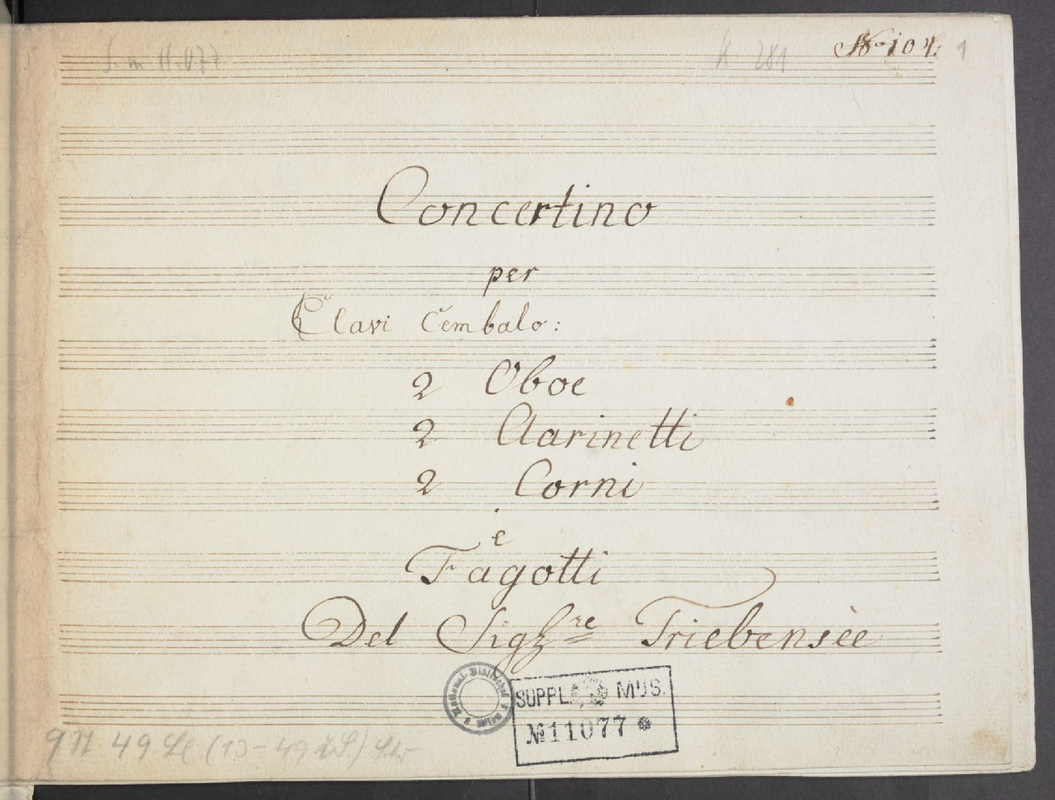 S. m. 11.077
K 281
No. 104. 1
Concertino
per
Clavi Cembalo:
2 Oboe
2 Clarinetti
2 Corni
e
Fagotti
Del Sig.re Triebensèe
SUPPL. MUS.
No 11077 *